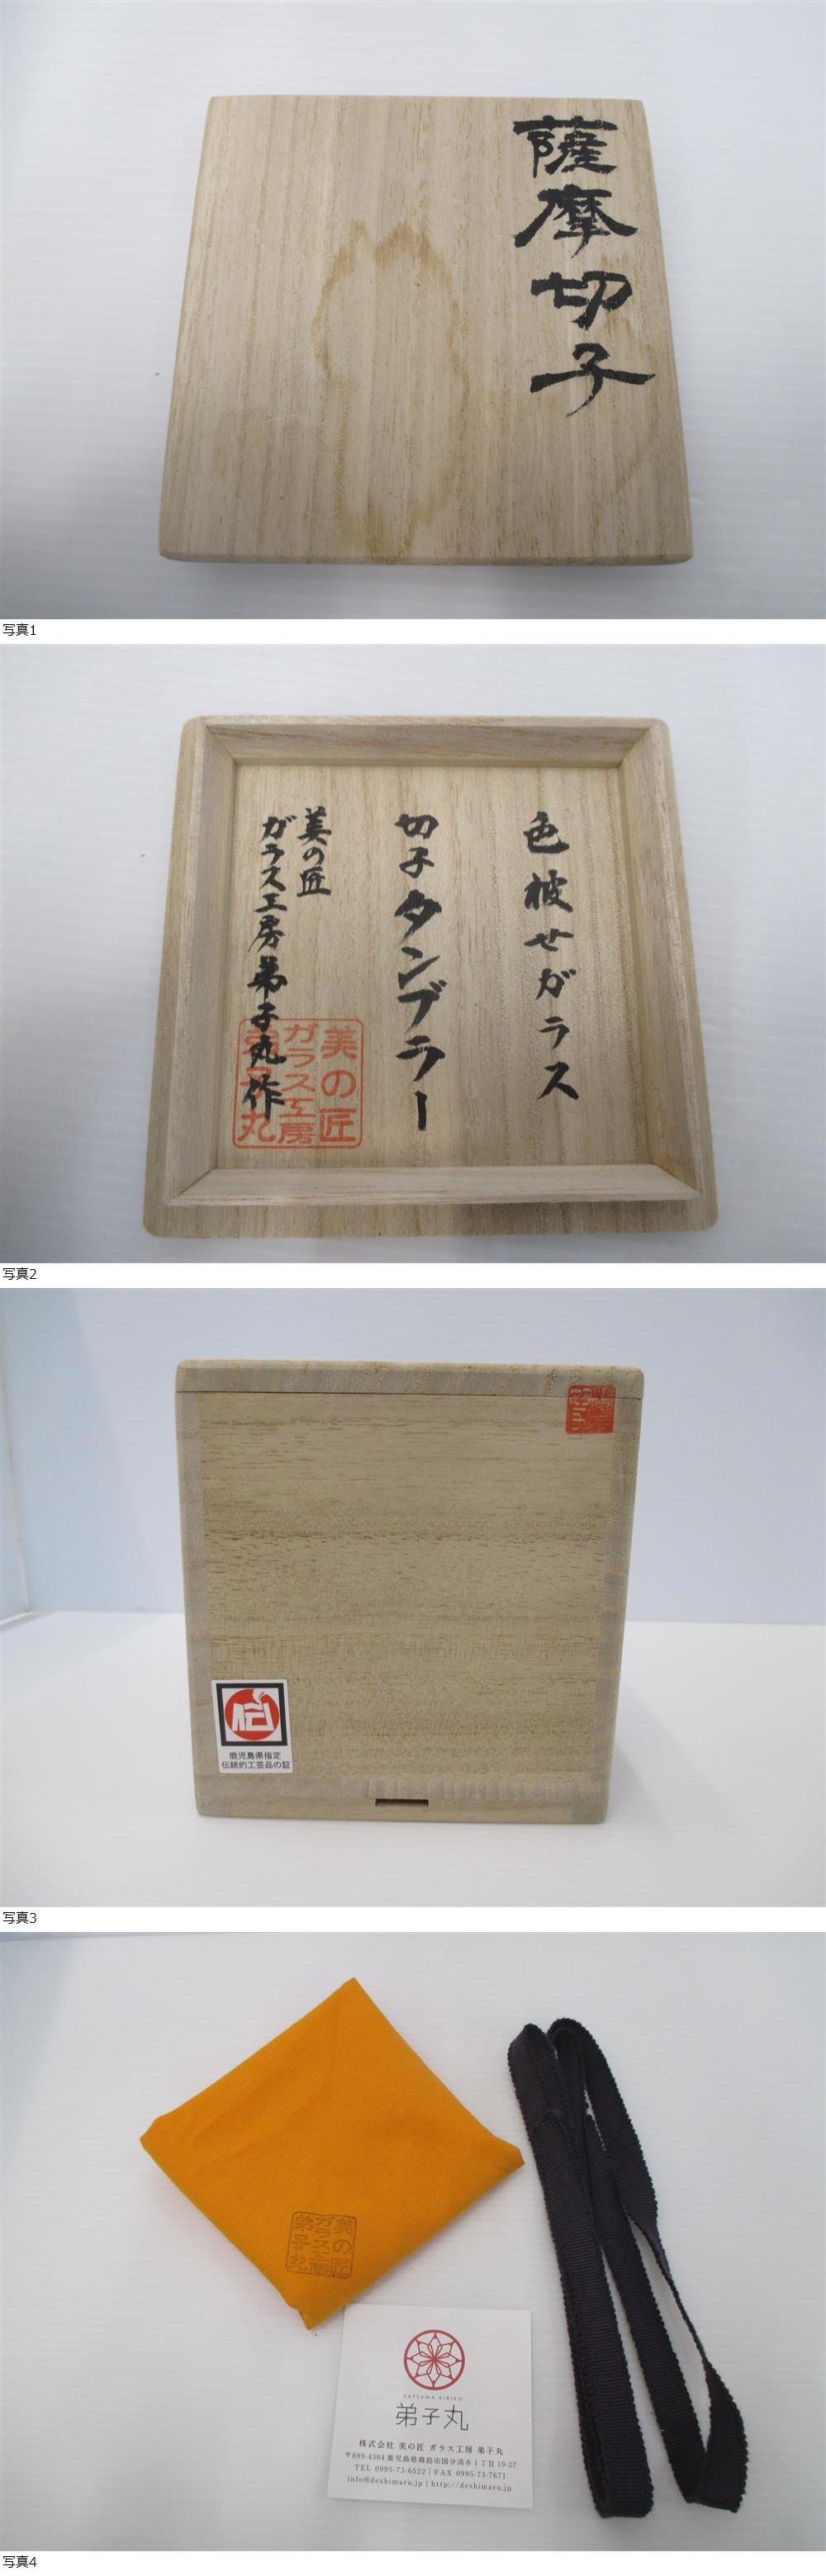 薩摩切子
写真1
色被せガラス
切子タンブラー
美の匠
ガラス工房弟子丸作
美の匠
ガラス工房
弟子丸
写真2
鹿児島県指定
伝統的工芸品の証
写真3
美の匠
ガラス工房
弟子丸
SATSUMA KIRIKO
弟子丸
株式会社 美の匠 ガラス工房 弟子丸
〒899-4304 鹿児島県霧島市国分清水1丁目19-27
TEL 0995-73-6522 | FAX 0995-73-7671
info@deshimaru.jp | http://deshimaru.jp
写真4